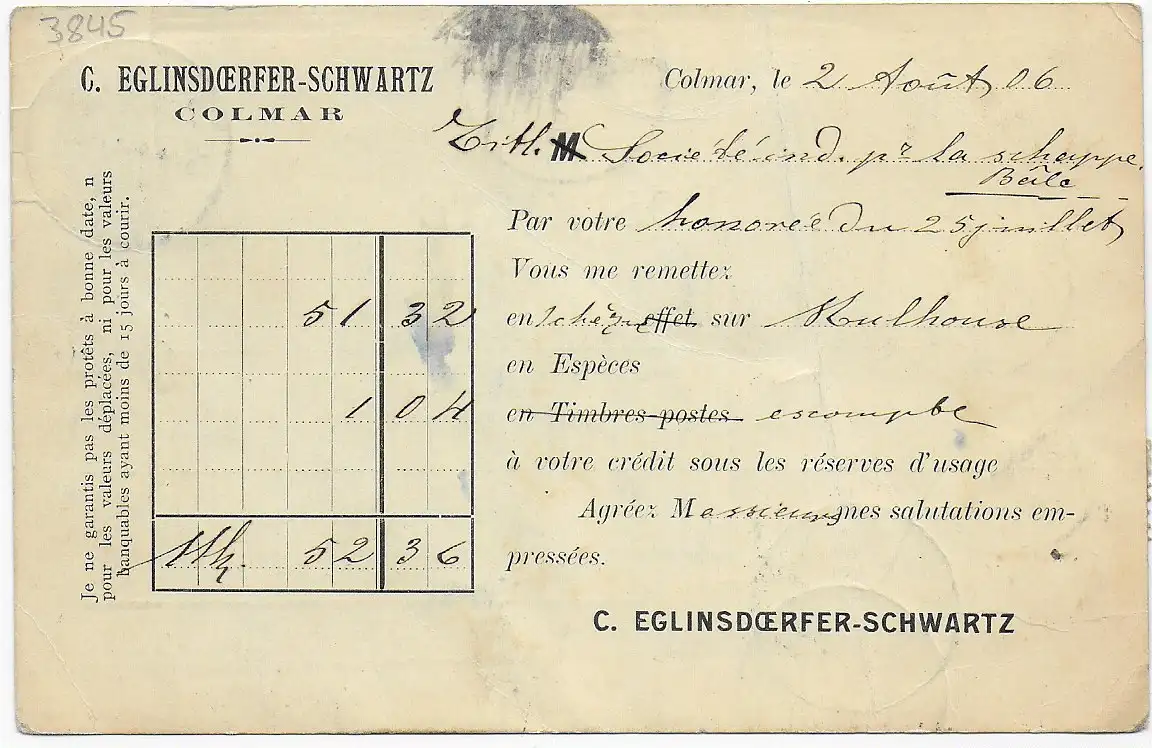 3845
C. EGLINSDŒRFER-SCHWARTZ
COLMAR
Colmar, le 2 Août 06
Titl. M Société ind. pr la schappe.
Bâle
Par votre honorée du 25 juillet
Vous me remettez
en chèque effet sur Mulhouse
en Espèces
en Timbres-postes escompte
à votre crédit sous les réserves d'usage
Agréez Messieurs mes salutations em-
pressées.
C. EGLINSDŒRFER-SCHWARTZ
51 32
1 04
Mk. 52 36
Je ne garantis pas les protêts à bonne date, n
pour les valeurs déplacées, ni pour les valeurs
banquables ayant moins de 15 jours à courir.